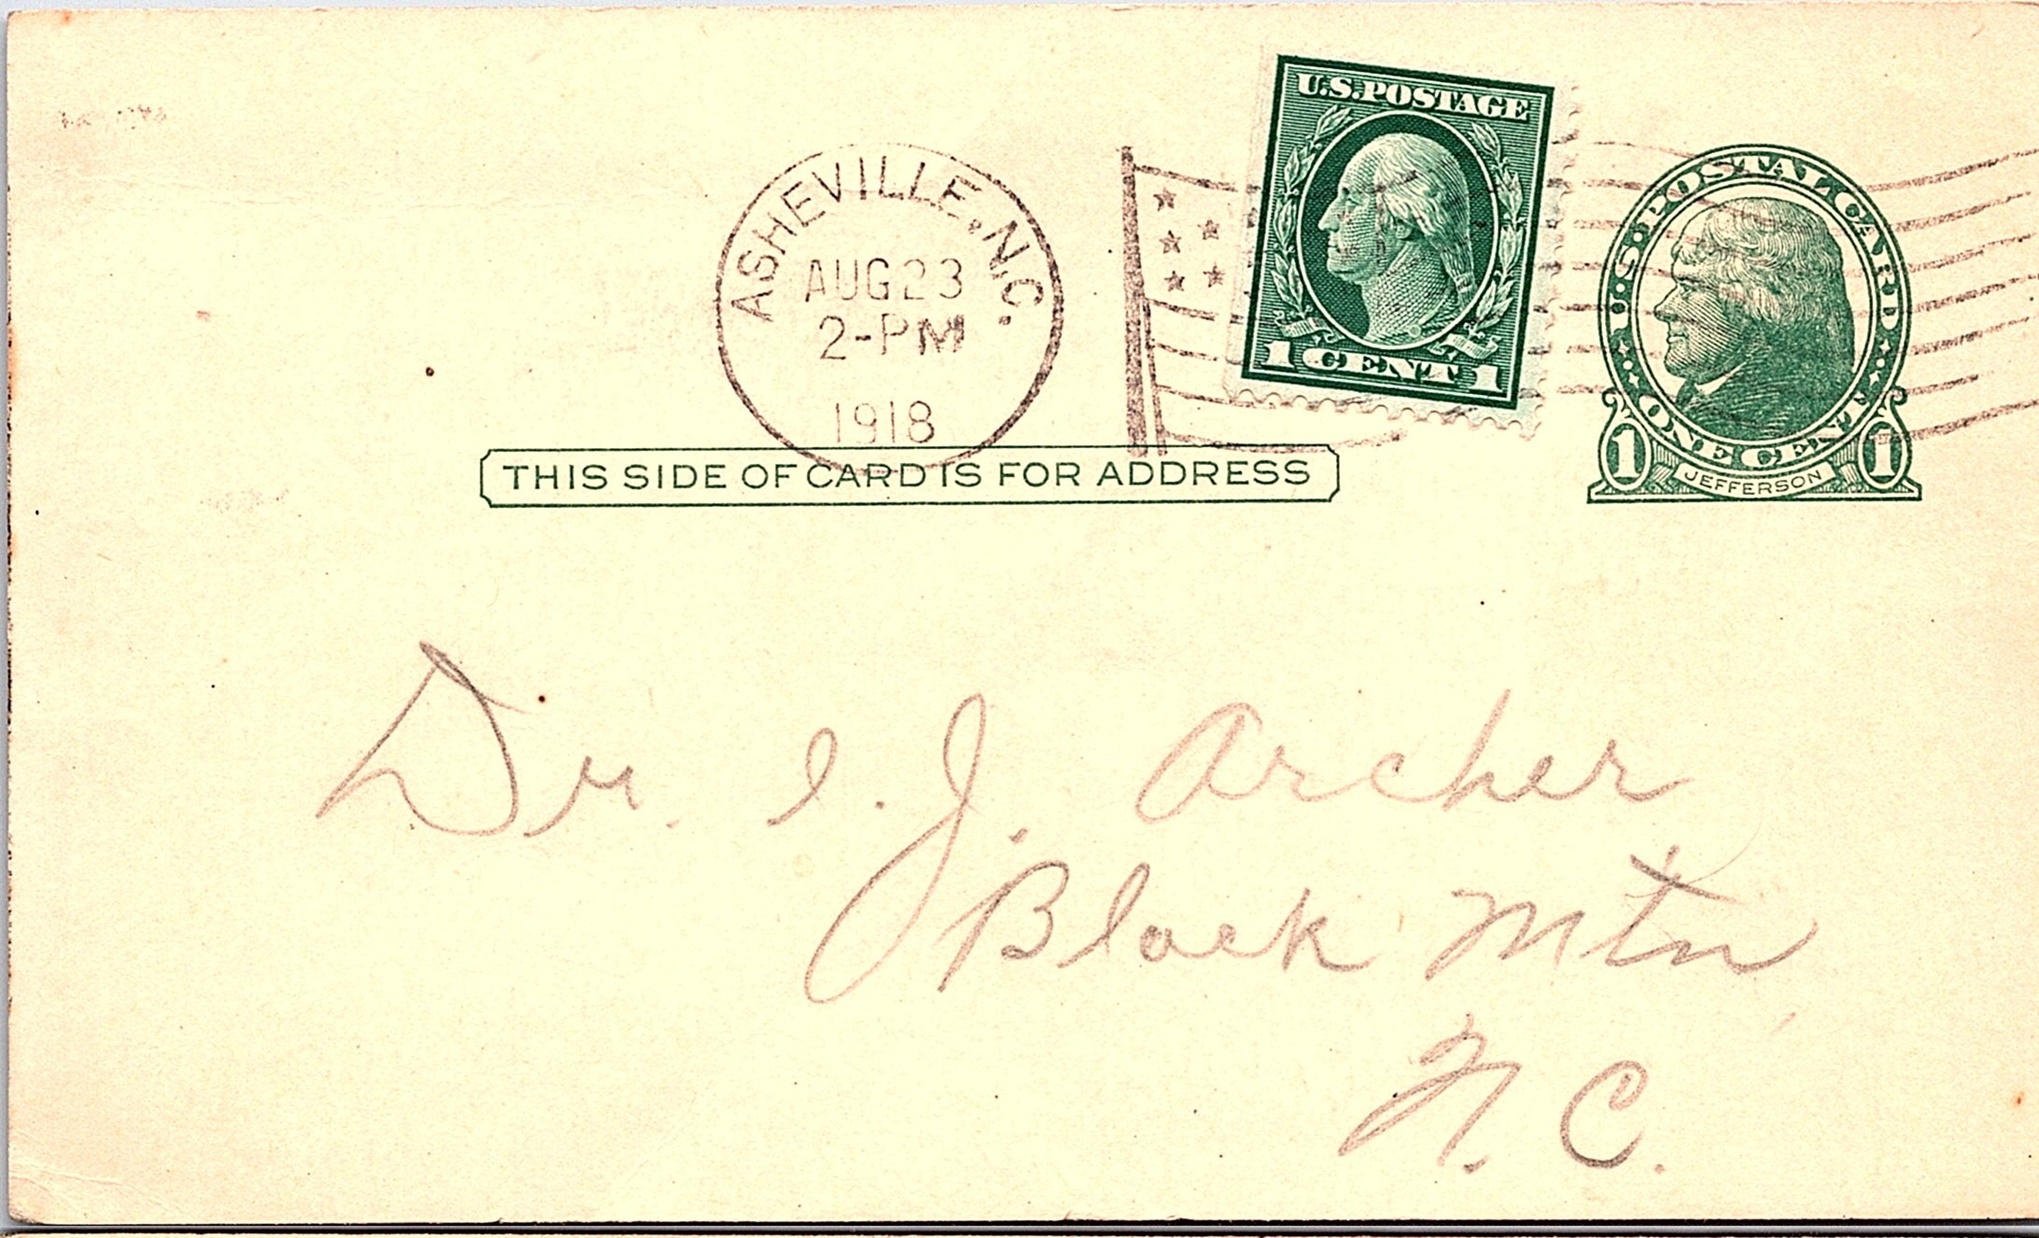 U.S. POSTAGE
1 CENT 1
U·S·POSTAL CARD
ONE CENT
1 JEFFERSON 1
ASHEVILLE, N.C.
AUG 23
2-PM
1918
THIS SIDE OF CARD IS FOR ADDRESS
Dr. I. J. Archer
Black Mtn
N. C.